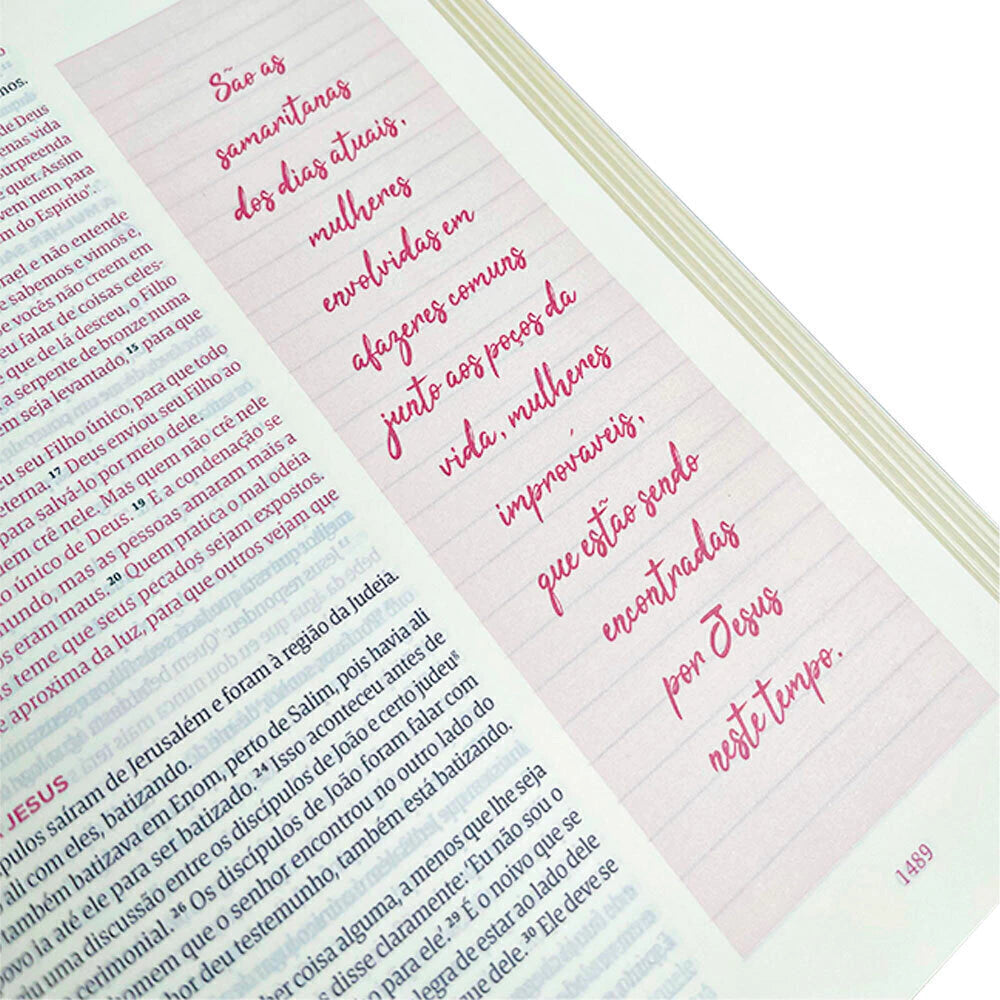 nos.
de Deus
enas vida
surpreenda
e quer. Assim
vem nem para
m do Espírito".
rael e não entende
e sabemos e vimos e,
e vocês não creem em
eu falar de coisas celes-
e que de lá desceu, o Filho
a serpente de bronze numa
em seja levantado, 15 para que
u seu Filho único, para que todo
eterna. 17 Deus enviou seu Filho ao
para salvá-lo por meio dele.
em crê nele. Mas quem não crê nele
o único de Deus. 19 E a condenação se
mundo, mas as pessoas amaram mais a
os eram maus. 20 Quem pratica o mal odeia
s teme que seus pecados sejam expostos.
e aproxima da luz, para que outros vejam que
JESUS
pulos saíram de Jerusalém e foram à região da Judeia.
ali com eles, batizando.
também batizava em Enom, perto de Salim, pois havia ali
ovo ia até ele para ser batizado. 24 Isso aconteceu antes de
iu uma discussão entre os discípulos de João e certo judeu
cerimonial. 26 Os discípulos de João foram falar com
homem que o senhor encontrou no outro lado do
or deu testemunho, também está batizando.
ber coisa alguma, a menos que lhe seja
disse claramente: 'Eu não sou o
para ele'. 29 É o noivo que se
legra de estar ao lado dele
que dele. 30 Ele deve se
São as
samaritanas
dos dias atuais,
mulheres
envolvidas em
afazeres comuns
junto aos poços da
vida, mulheres
improváveis,
que estão sendo
encontradas
por Jesus
neste tempo.
1489